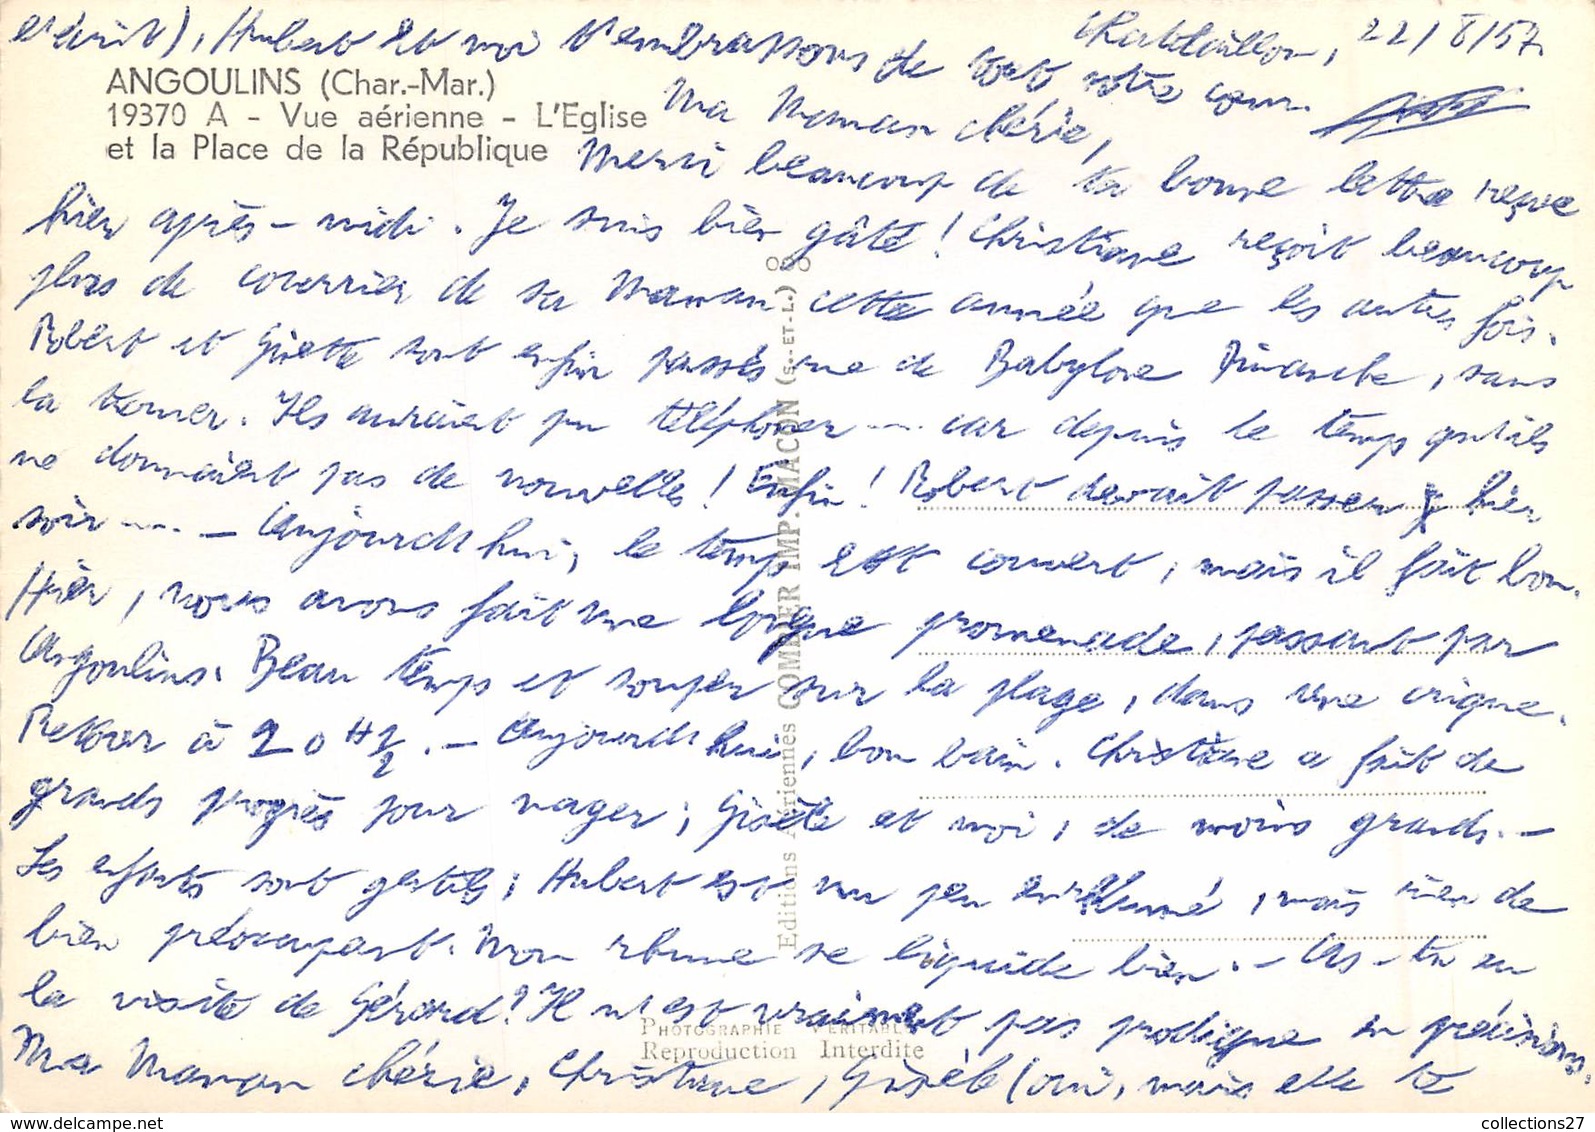 Chatelaillon, 22/8/57.
ANGOULINS (Char.-Mar.)
19370 A - Vue aérienne - L'Eglise
et la Place de la République
Ma Maman chérie,
Merci beaucoup de ta bonne lettre reçue
hier après-midi. Je suis bien gâté ! Christiane reçoit beaucoup
plus de courrier de sa Maman cette année que les autres fois.
Robert et Gisèle sont enfin passés rue de Babylone Dimanche, sans
la trouver. Ils auraient pu téléphoner ... car depuis le temps qu'ils
ne donnaient pas de nouvelles ! Enfin ! Robert devait passer hier
soir .... - Aujourd'hui, le temps est couvert, mais il fait bon.
Hier, nous avons fait une longue promenade, passant par
Angoulins. Beau temps et souper sur la plage, dans une crique.
Retour à 20 H 1/2. - Aujourd'hui, bon bain. Christiane a fait de
grands progrès pour nager ; Gisèle et moi, de moins grands. -
Les enfants sont gentils ; Hubert est un peu enrhumé, mais rien de
bien préoccupant. Mon rhume se liquide bien. - As-tu eu
la visite de Gérard ? Il n'est vraiment pas prodigue en précisions.
Ma Maman chérie, Christiane, Gisèle (oui, mais elle te
écrit), Hubert et moi t'embrassons de tout notre cœur.
Editions Aériennes COMBIER IMP. MACON (S.-ET-L.)
PHOTOGRAPHIE VÉRITABLE
Reproduction Interdite
collections27